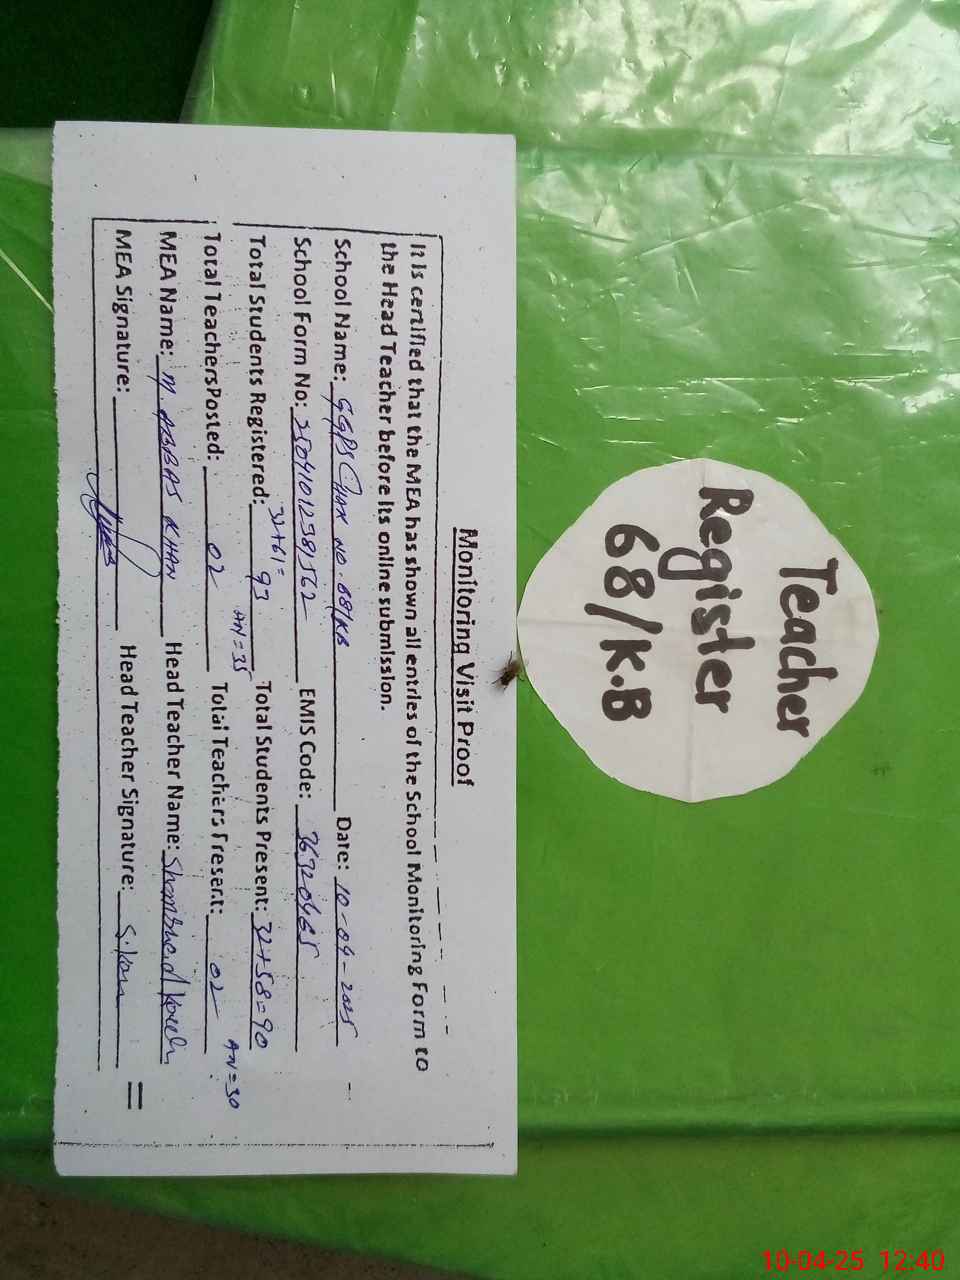 Teacher
Register
68/K.B
Monitoring Visit Proof
It is certified that the MEA has shown all entries of the School Monitoring Form to
the Head Teacher before its online submission.
School Name: GGPS Chak No. 68/KB Date: 10-04-2025
School Form No: 25041012381562 EMIS Code: 36320465
32+61=
Total Students Registered: 93 Total Students Present: 32+58=90
AN=35 AN=30
Total Teachers Posted: 02 Total Teachers Present: 02
MEA Name: M. ABBAS KHAN Head Teacher Name: Shamshad
MEA Signature: Head Teacher Signature:
10-04-25 12:40